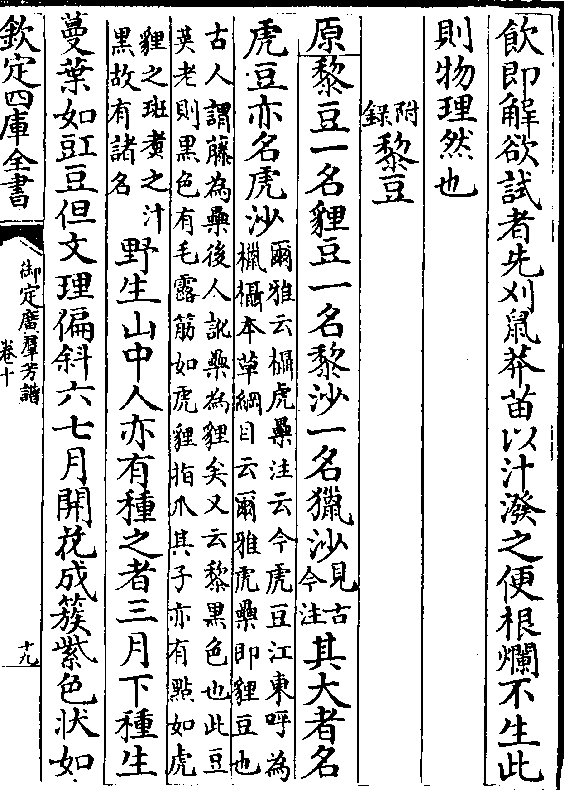 飲即解欲試者先刈鼠莽苗以汁潑之便根爛不生此
則物理然也
附錄黎豆
原黎豆一名貍豆一名黎沙一名獵沙見古今注其大者名
虎豆亦名虎沙爾雅云欇虎櫐注云今虎豆江東呼為
㯿欇本草綱目云爾雅虎櫐即貍豆也
古人謂藤為櫐後人訛櫐為貍矣又云黎黑色也此豆
莢老則黑色有毛露筋如虎貍指爪其子亦有點如虎
貍之斑煑之汁
黑故有諸名野生山中人亦有種之者三月下種生
蔓葉如豇豆但文理偏斜六七月開花成簇紫色狀如
欽定四庫全書
御定廣羣芳譜
卷十
十九